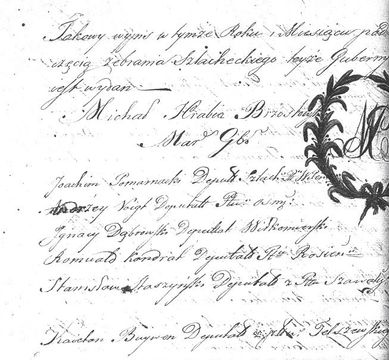 Takowy wypis w tymże Roku i Miesiącu pod
częcią Zebrania Szlacheckiego teyże Guberni
jest wydan
Michał Hrabia Brzos
Mar. Gb.
Joachim Pomarnacki Deputt Szlach: Pt
Andrzey Voigt Deputatt Ptu osm:
Ignacy Dąbrowski Deputtat Wiłkomierski
Romuald Kondrat Deputatt Ptu Rosień
Stanisław Staszyński Deputatt z Pttu Szawel
Kaietan Buywen Deputat z pttu Telszewskiego